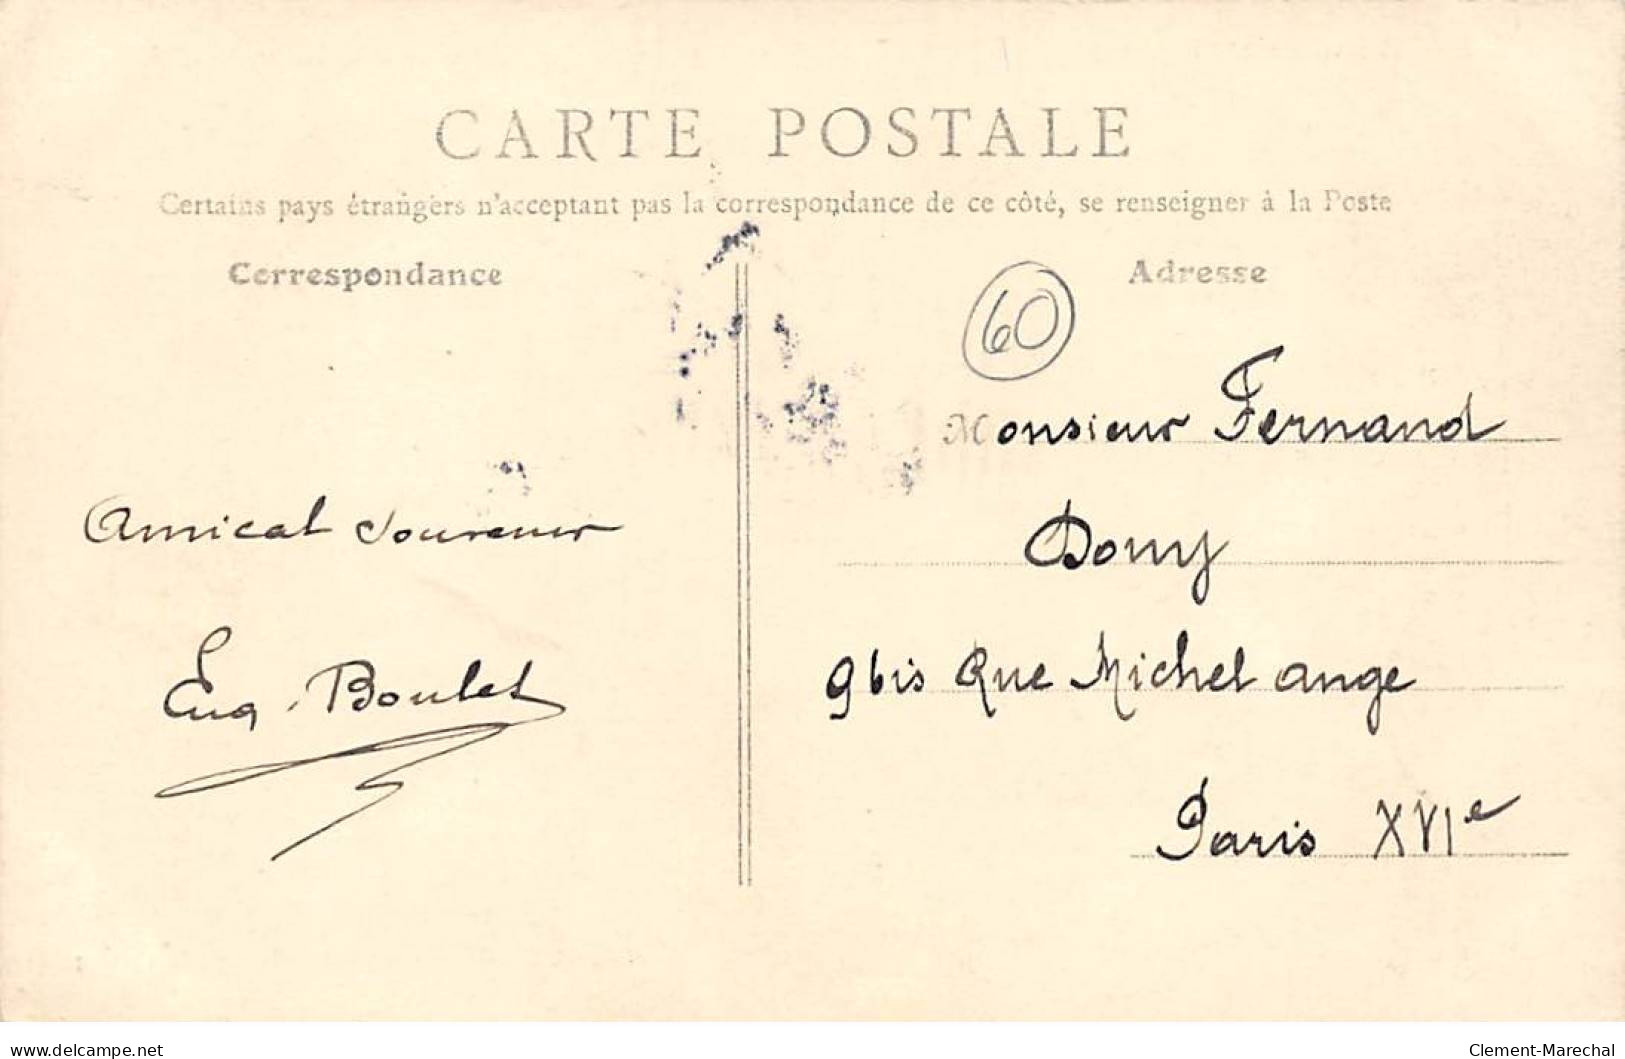 CARTE POSTALE
Certains pays étrangers n'acceptant pas la correspondance de ce côté, se renseigner à la Poste
Correspondance
Adresse
60
Monsieur Fernand
Dony
9 bis Rue Michel ange
Paris XVIe
Amical Souvenir
Eug. Boulet
www.delcampe.net
Clement-Marechal